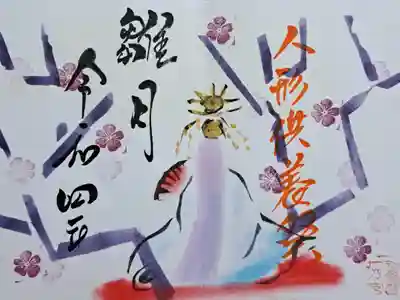 人形供養祭
雛月
令和四年